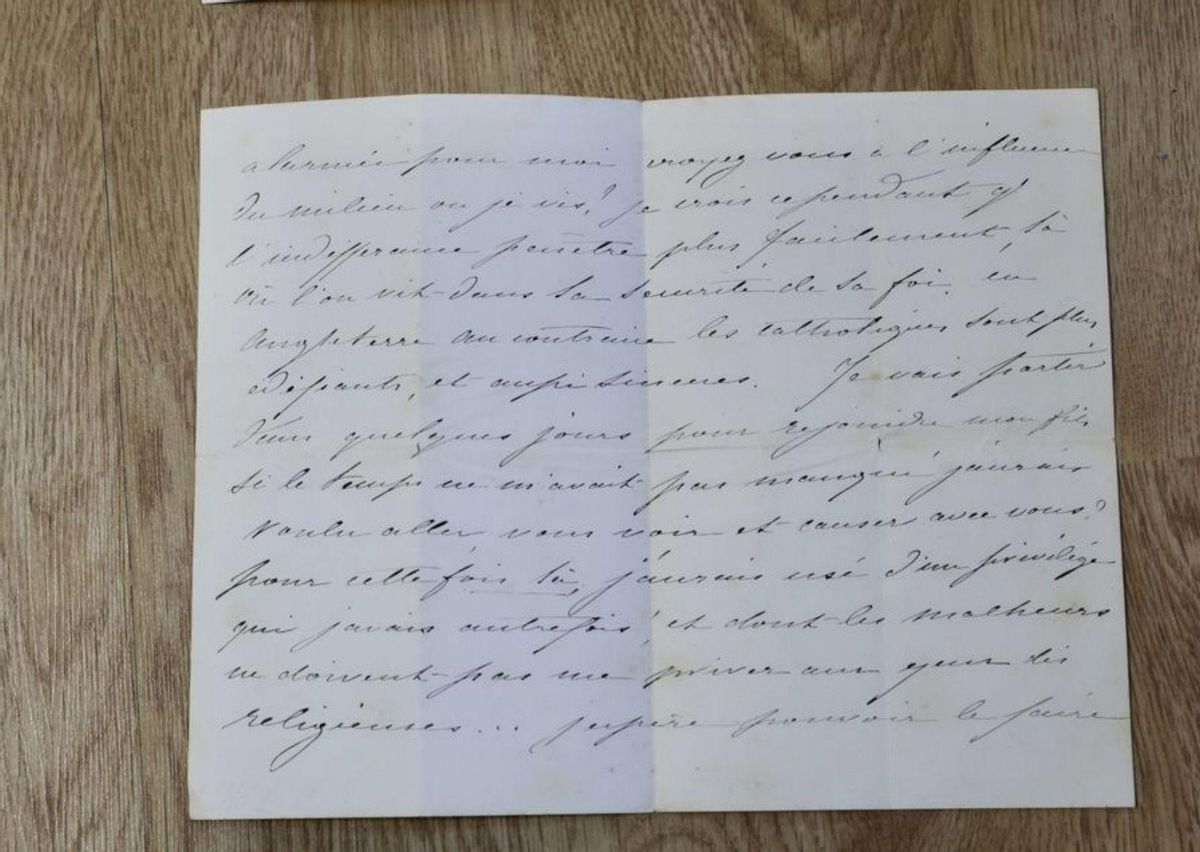 alarmée pour moi croyez vous a l'influence
du milieu ou je vis? je crois cependant q!
l'indifference penètre plus facilement, là
où l'on vit dans la securité de sa foi. en
Angleterre au contraire les catholiques sont plus
edifiants, et aussi sinceres. Je vais partir
dans quelques jours pour rejoindre mon fils
si le temps ne m'avait pas manqué j'aurais
voulu aller vous voir et causer avec vous?
pour cette fois là, j'aurais usé d'un privilège
que j'avais autrefois! et dont les malheurs
ne doivent pas me priver aux yeux des
religieuses... j'espère pouvoir le faire